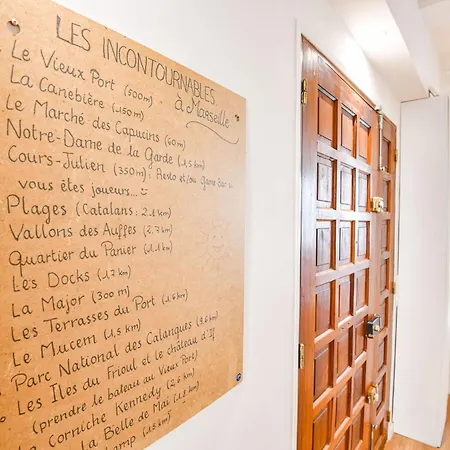 LES INCONTOURNABLES
à Marseille
Le Vieux Port (500m)
La Canebière (150m)
Le Marché des Capucins (60m)
Notre-Dame de la Garde (1,5 km)
Cours-Julien (350m): Resto et/ou Game Bar si
vous êtes joueurs...
Plages (Catalans: 2.1 km)
Vallons des Auffes (2.7 km)
Quartier du Panier (1.1 km)
Les Docks (1.7 km)
La Major (300 m)
Les Terrasses du Port (1,6 km)
Le Mucem (1,5 km)
Parc National des Calanques (9.6 km)
Les Îles du Frioul et le château d'If
(prendre le bateau au Vieux Port)
Corniche Kennedy (2,6 km)
La Belle de Mai (1,8 km)
(1.5 km)